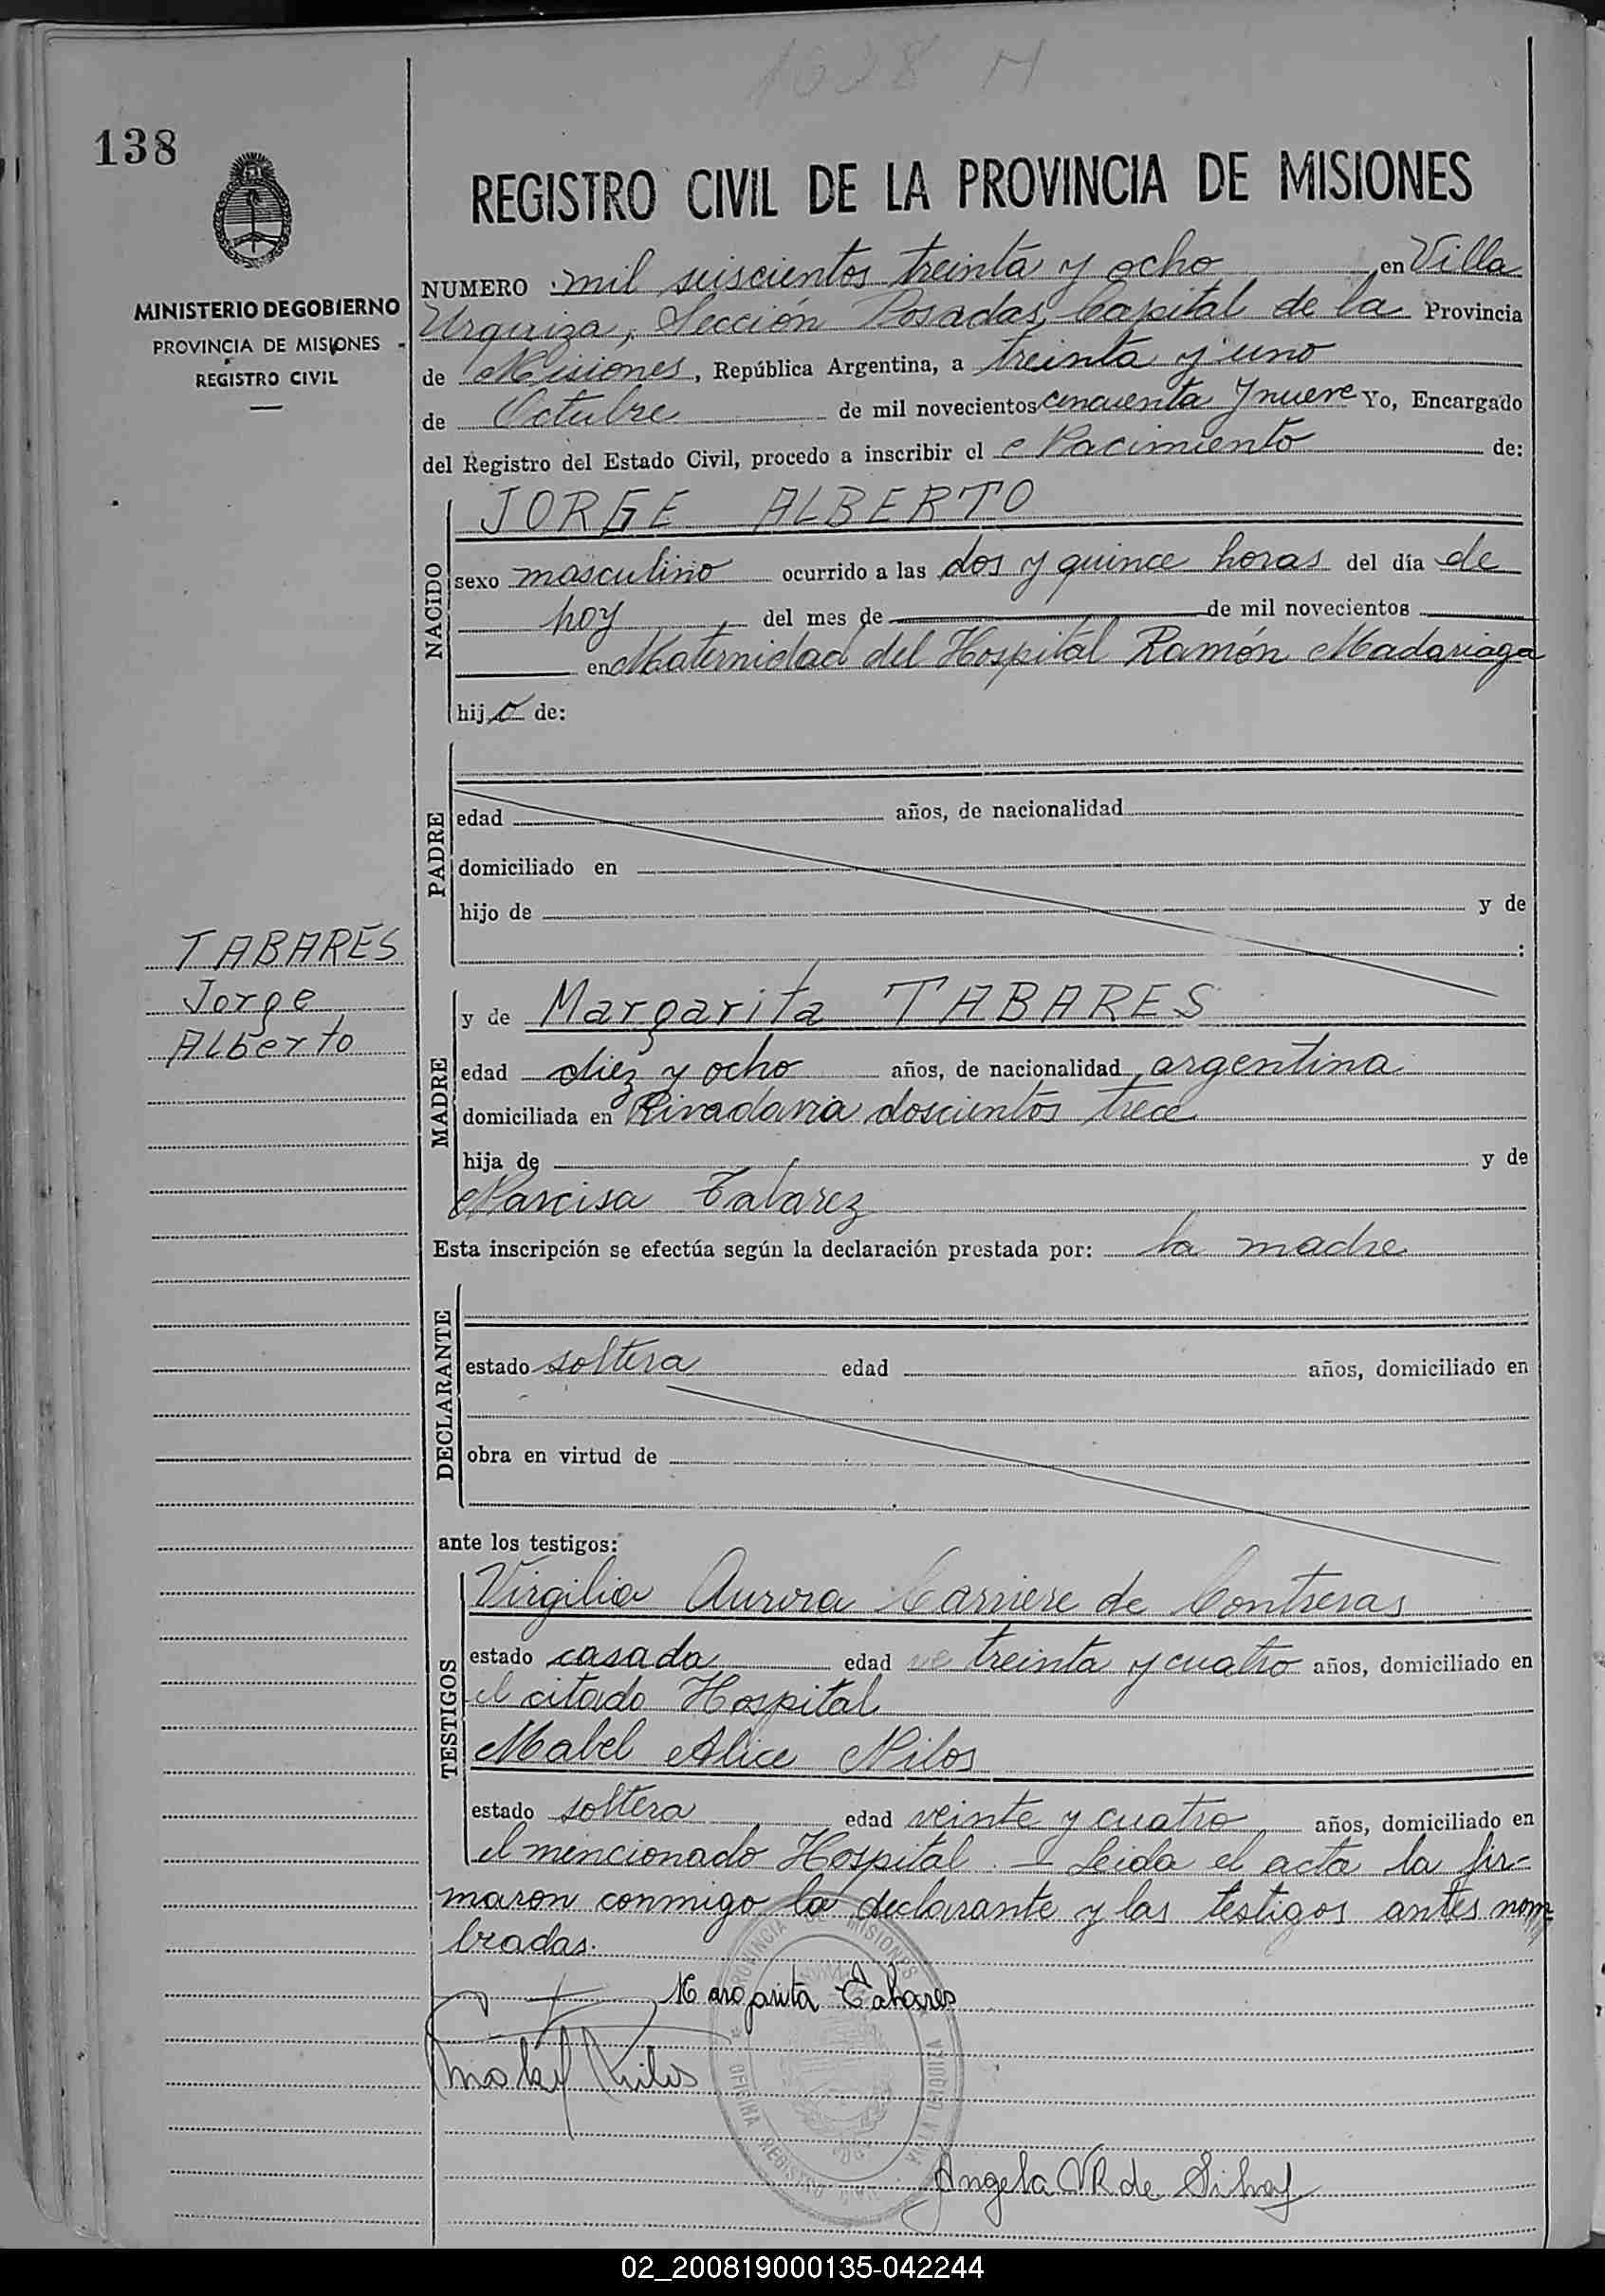 1638 M
138
REGISTRO CIVIL DE LA PROVINCIA DE MISIONES
MINISTERIO DE GOBIERNO
PROVINCIA DE MISIONES
REGISTRO CIVIL
NUMERO mil seiscientos treinta y ocho en Villa
Urquiza, Sección Posadas, Capital de la Provincia
de Misiones, República Argentina, a treinta y uno
de Octubre de mil novecientos cincuenta y nueve Yo, Encargado
del Registro del Estado Civil, procedo a inscribir el Nacimiento de:
NACIDO
JORGE ALBERTO
sexo masculino ocurrido a las dos y quince horas del día de
hoy del mes de de mil novecientos
en Maternidad del Hospital Ramón Madariaga
hijo de:
PADRE
edad años, de nacionalidad
domiciliado en
hijo de y de
:
TABARES
Jorge
Alberto
MADRE
y de Margarita TABARES
edad diez y ocho años, de nacionalidad argentina
domiciliada en Rivadavia doscientos trece
hija de y de
Narcisa Tabarez
Esta inscripción se efectúa según la declaración prestada por: la madre
DECLARANTE
estado soltera edad años, domiciliado en
obra en virtud de
ante los testigos:
TESTIGOS
Virgilia Aurora Carriere de Contreras
estado casada edad treinta y cuatro años, domiciliado en
el citado Hospital
Mabel Alice Nilos
estado soltera edad veinte y cuatro años, domiciliado en
el mencionado Hospital. - Leida el acta la fir-
maron conmigo la declarante y las testigos antes nom=
bradas.
Margarita Tabares
PROVINCIA DE MISIONES
OFICINA REGISTRO CIVIL
Angela VR de
02_200819000135-042244